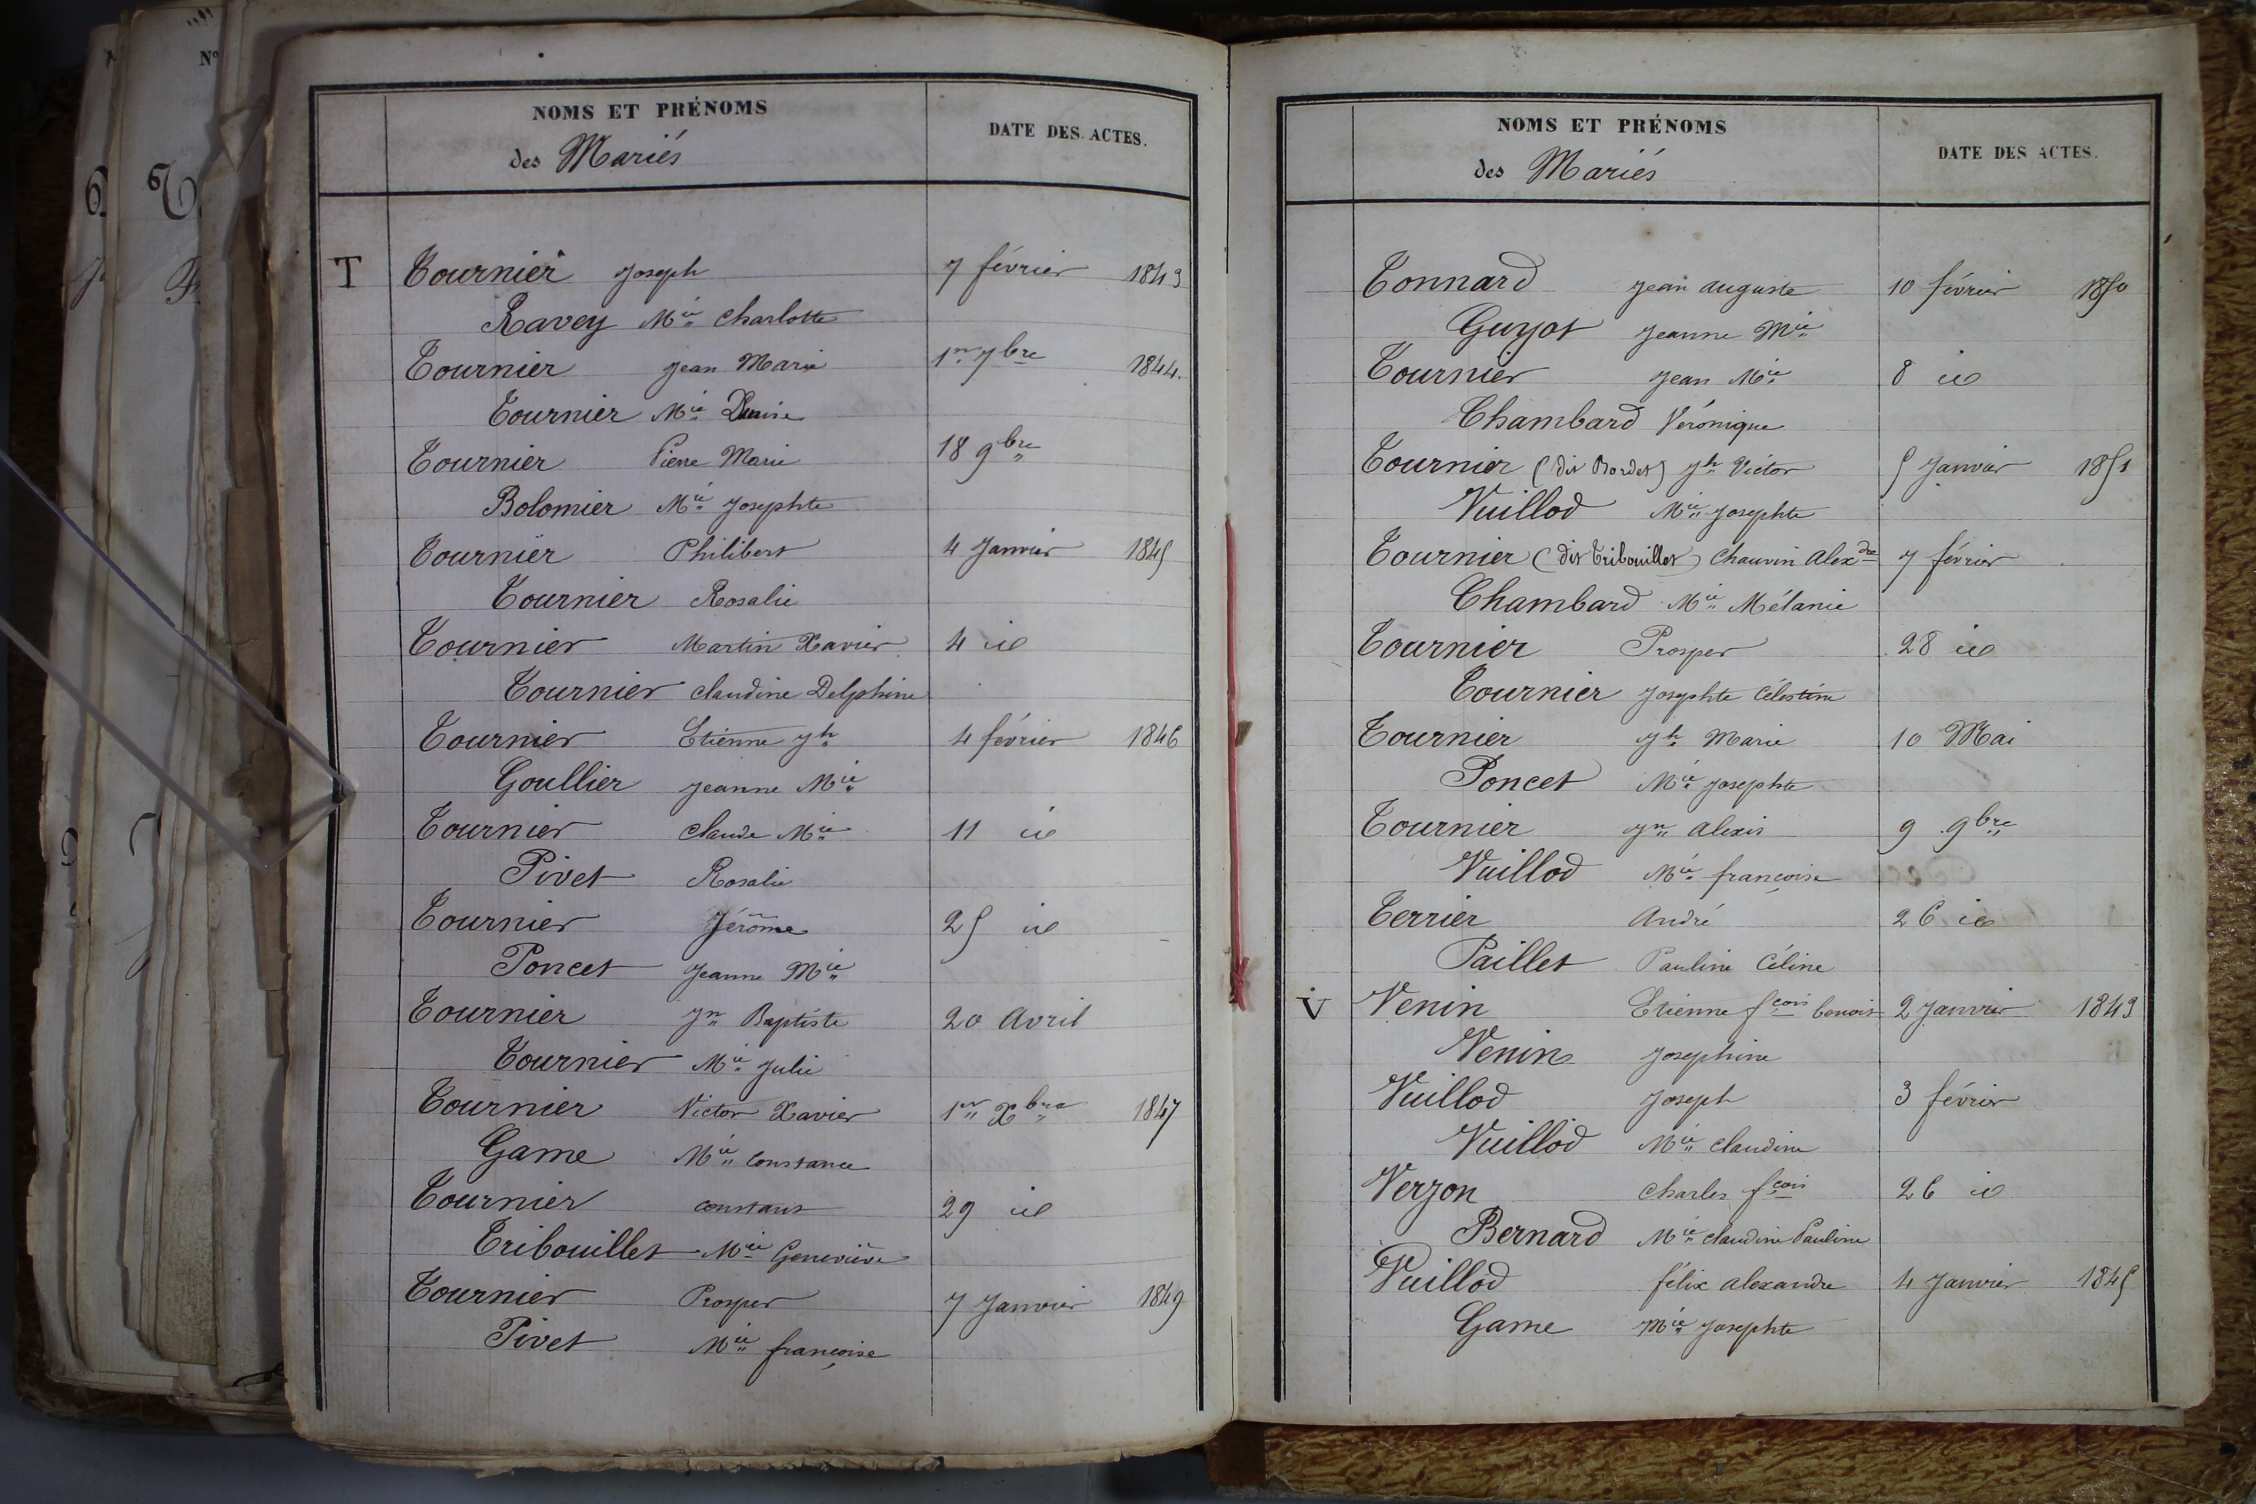 NOMS ET PRÉNOMS
des Mariés
DATE DES ACTES.
T Tournier Joseph 7 février 1843
Ravey Mie Charlotte
Tournier Jean Marie 1er 7bre 1844.
Tournier Mie Denise
Tournier Pierre Marie 18 9bre
Bolomier Mie Josephte
Tournier Philibert 4 Janvier 1845
Tournier Rosalie
Tournier Martin Xavier 4 id
Tournier Claudine Delphine
Tournier Etienne Jh 4 février 1846
Goullier Jeanne Mie
Tournier Claude Mie 11 id
Pivet Rosalie
Tournier Jérôme 25 id
Poncet Jeanne Mie
Tournier Jn Baptiste 20 Avril
Tournier Mie Julie
Tournier Victor Xavier 1er Xbre 1847
Game Mie Constance
Tournier Constant 29 id
Tribouillet Mie Geneviève
Tournier Prosper 7 Janvier 1849
Pivet Mie françoise
NOMS ET PRÉNOMS
des Mariés
DATE DES ACTES.
Tonnard Jean Auguste 10 février 1850
Guyot Jeanne Mie
Tournier Jean Mie 8 id
Chambard Véronique
Tournier (dit Bordet) Jh Victor 5 Janvier 1851
Vuillod Mie Josephte
Tournier (dit Tribouillet) Chauvin Alexdre 7 février
Chambard Mie Mélanie
Tournier Prosper 28 id
Tournier Josephte Célestine
Tournier Jh Marie 10 Mai
Poncet Mie Josephte
Tournier Jn Alexis 9 9bre
Vuillod Mie françoise
Terrier André 26 id
Paillet Pauline Céline
V Venin Etienne fcois benoit 2 Janvier 1843
Venin Josephine
Vuillod Joseph 3 février
Vuillod Mie Claudine
Verzon Charles fcois 26 id
Bernard Mie Claudine Pauline
Vuillod félix Alexandre 4 Janvier 1845
Game Mie Josephte